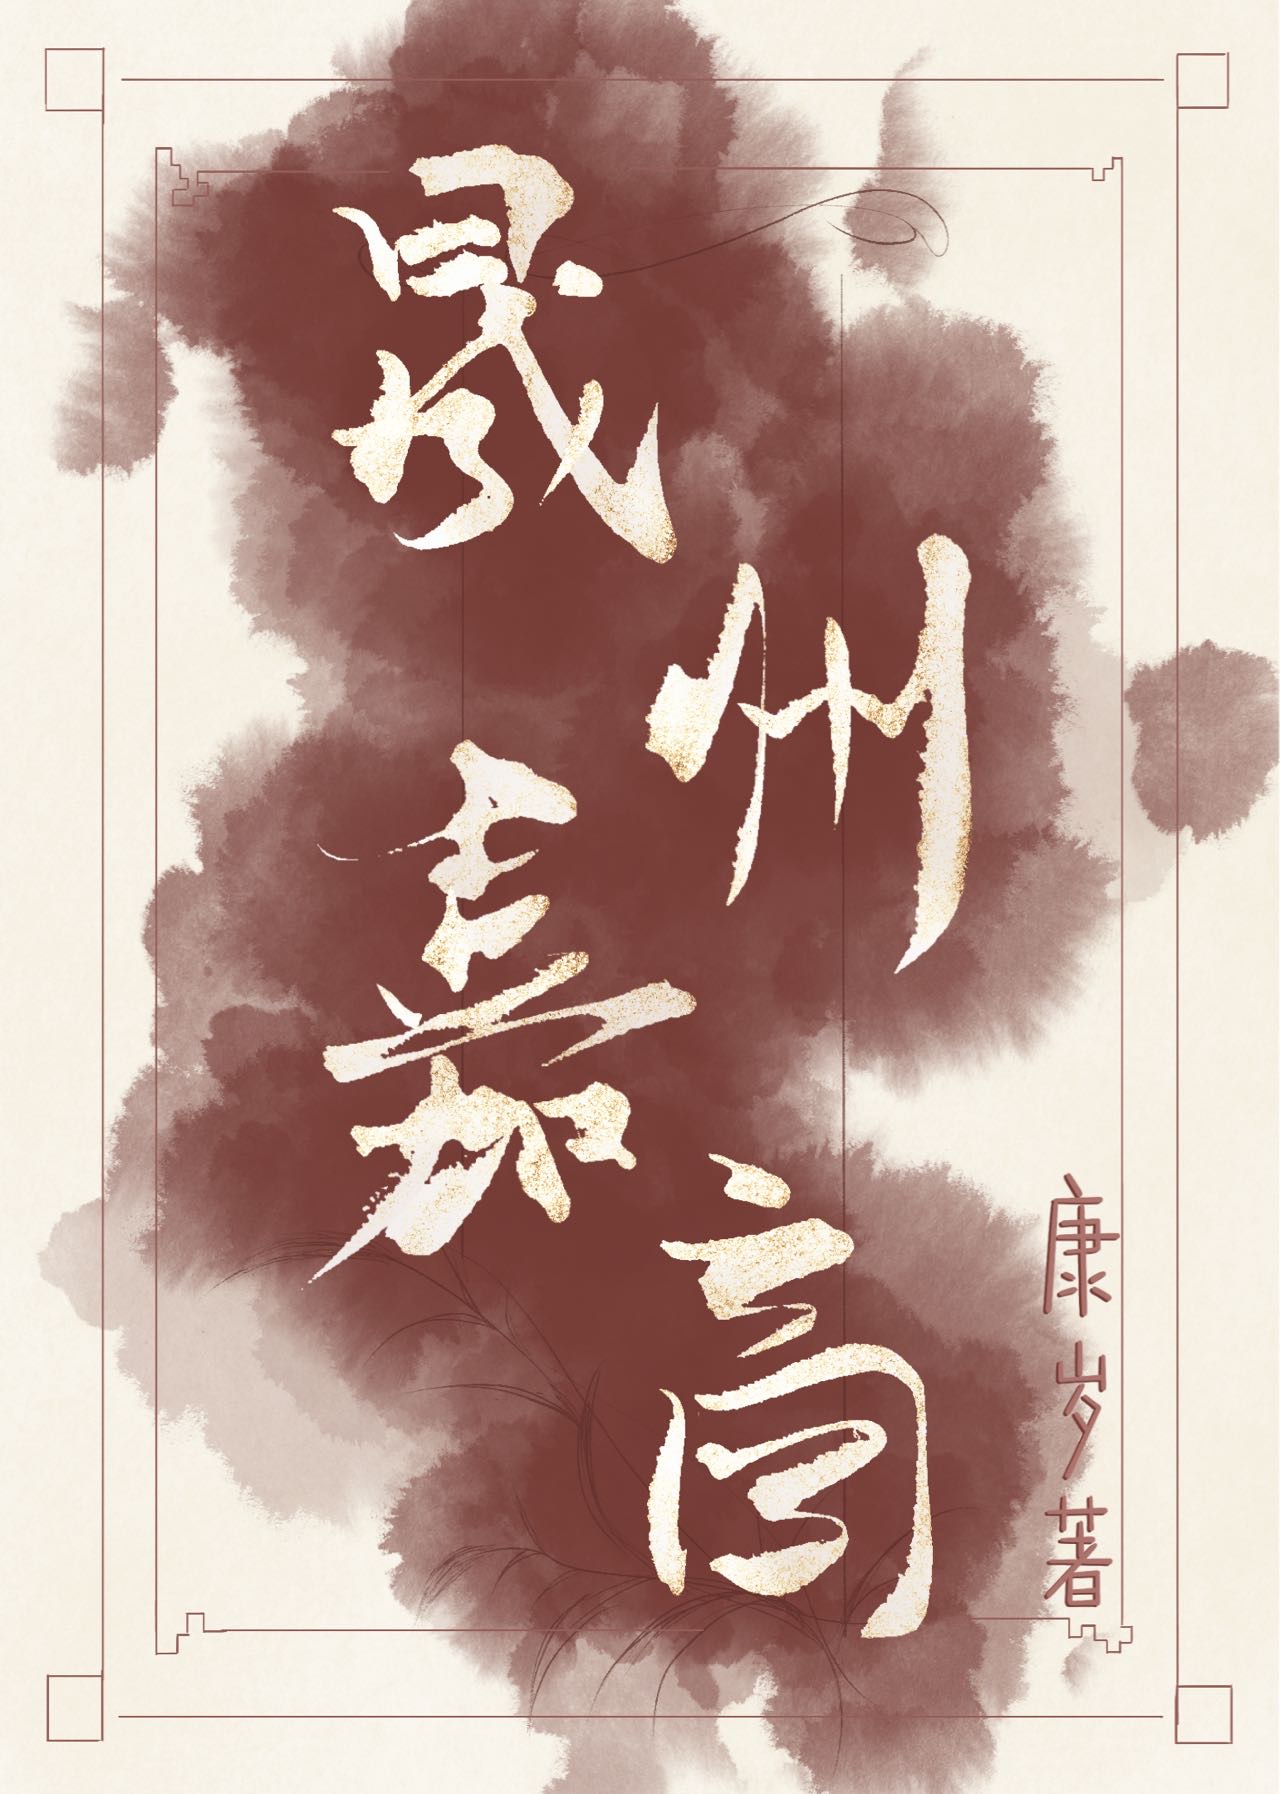 晟州嘉高
康岁著